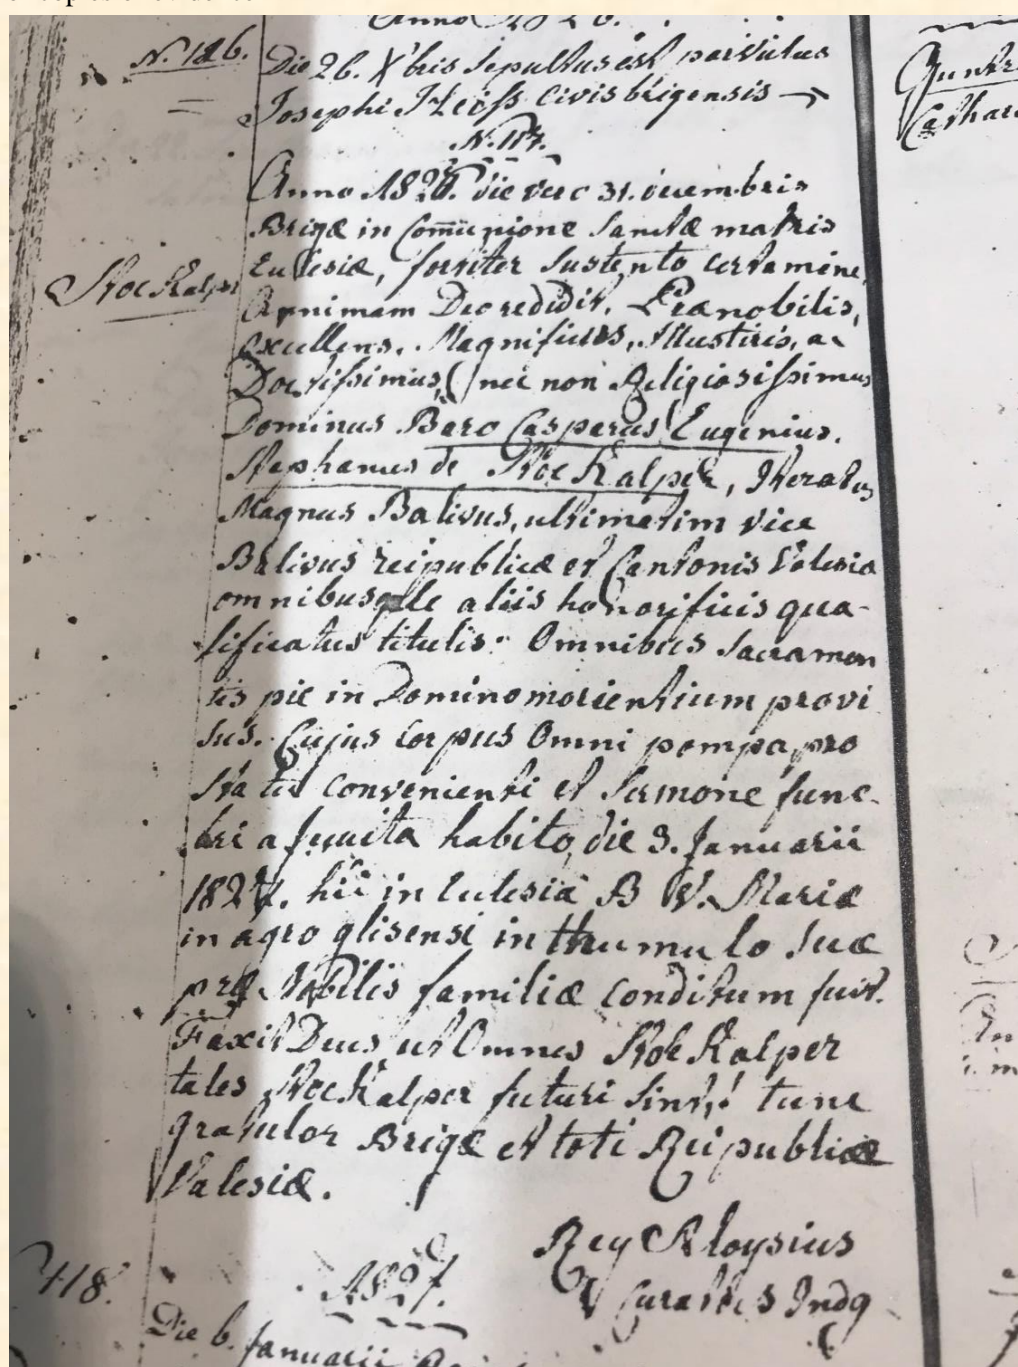 Anno 1826.
N. 116. Die 26. Xbris Sepultus est parvulus
Josephi civis brigensis
N. 117.
Anno 1826. die vero 31. decembris
Brigæ in Com̄unione Sanctæ matris
Stockalper Eclesiæ, fortiter Sustento certamine
Animam Deo redidit. Prænobilis,
excellens, Magnificus, Illustris, ac
Doctissimus, nec non Religiosissimus
Dominus Baro Casparus Eugenius.
Stephanus de Stockalper, Iteratus
Magnus Balivus, ultimatim vice
Balivus reipublicæ et Cantonis Valesia
omnibusque aliis honorificis qua-
lificatus titulis: Omnibus Sacramen
tis pie in Domino morientium provi
sus. Cujus corpus Omni pompa pro
statu convenienti et Sermone fune-
bri a habito, die 3. Januarii
1827. hic in Eclesia B V. Mariæ
in agro glisensi in thumulo Suæ
præ Nobilis familiæ conditum fuit.
Faxit Deus, ut Omnes Stockalper
tales Stockalper futuri Sint,! tunc
gratulor Brigæ et toti Reipublicæ
Valesiæ.
Rey Aloysius
Curatus Indg
1827.
118. Die 6. Januarii